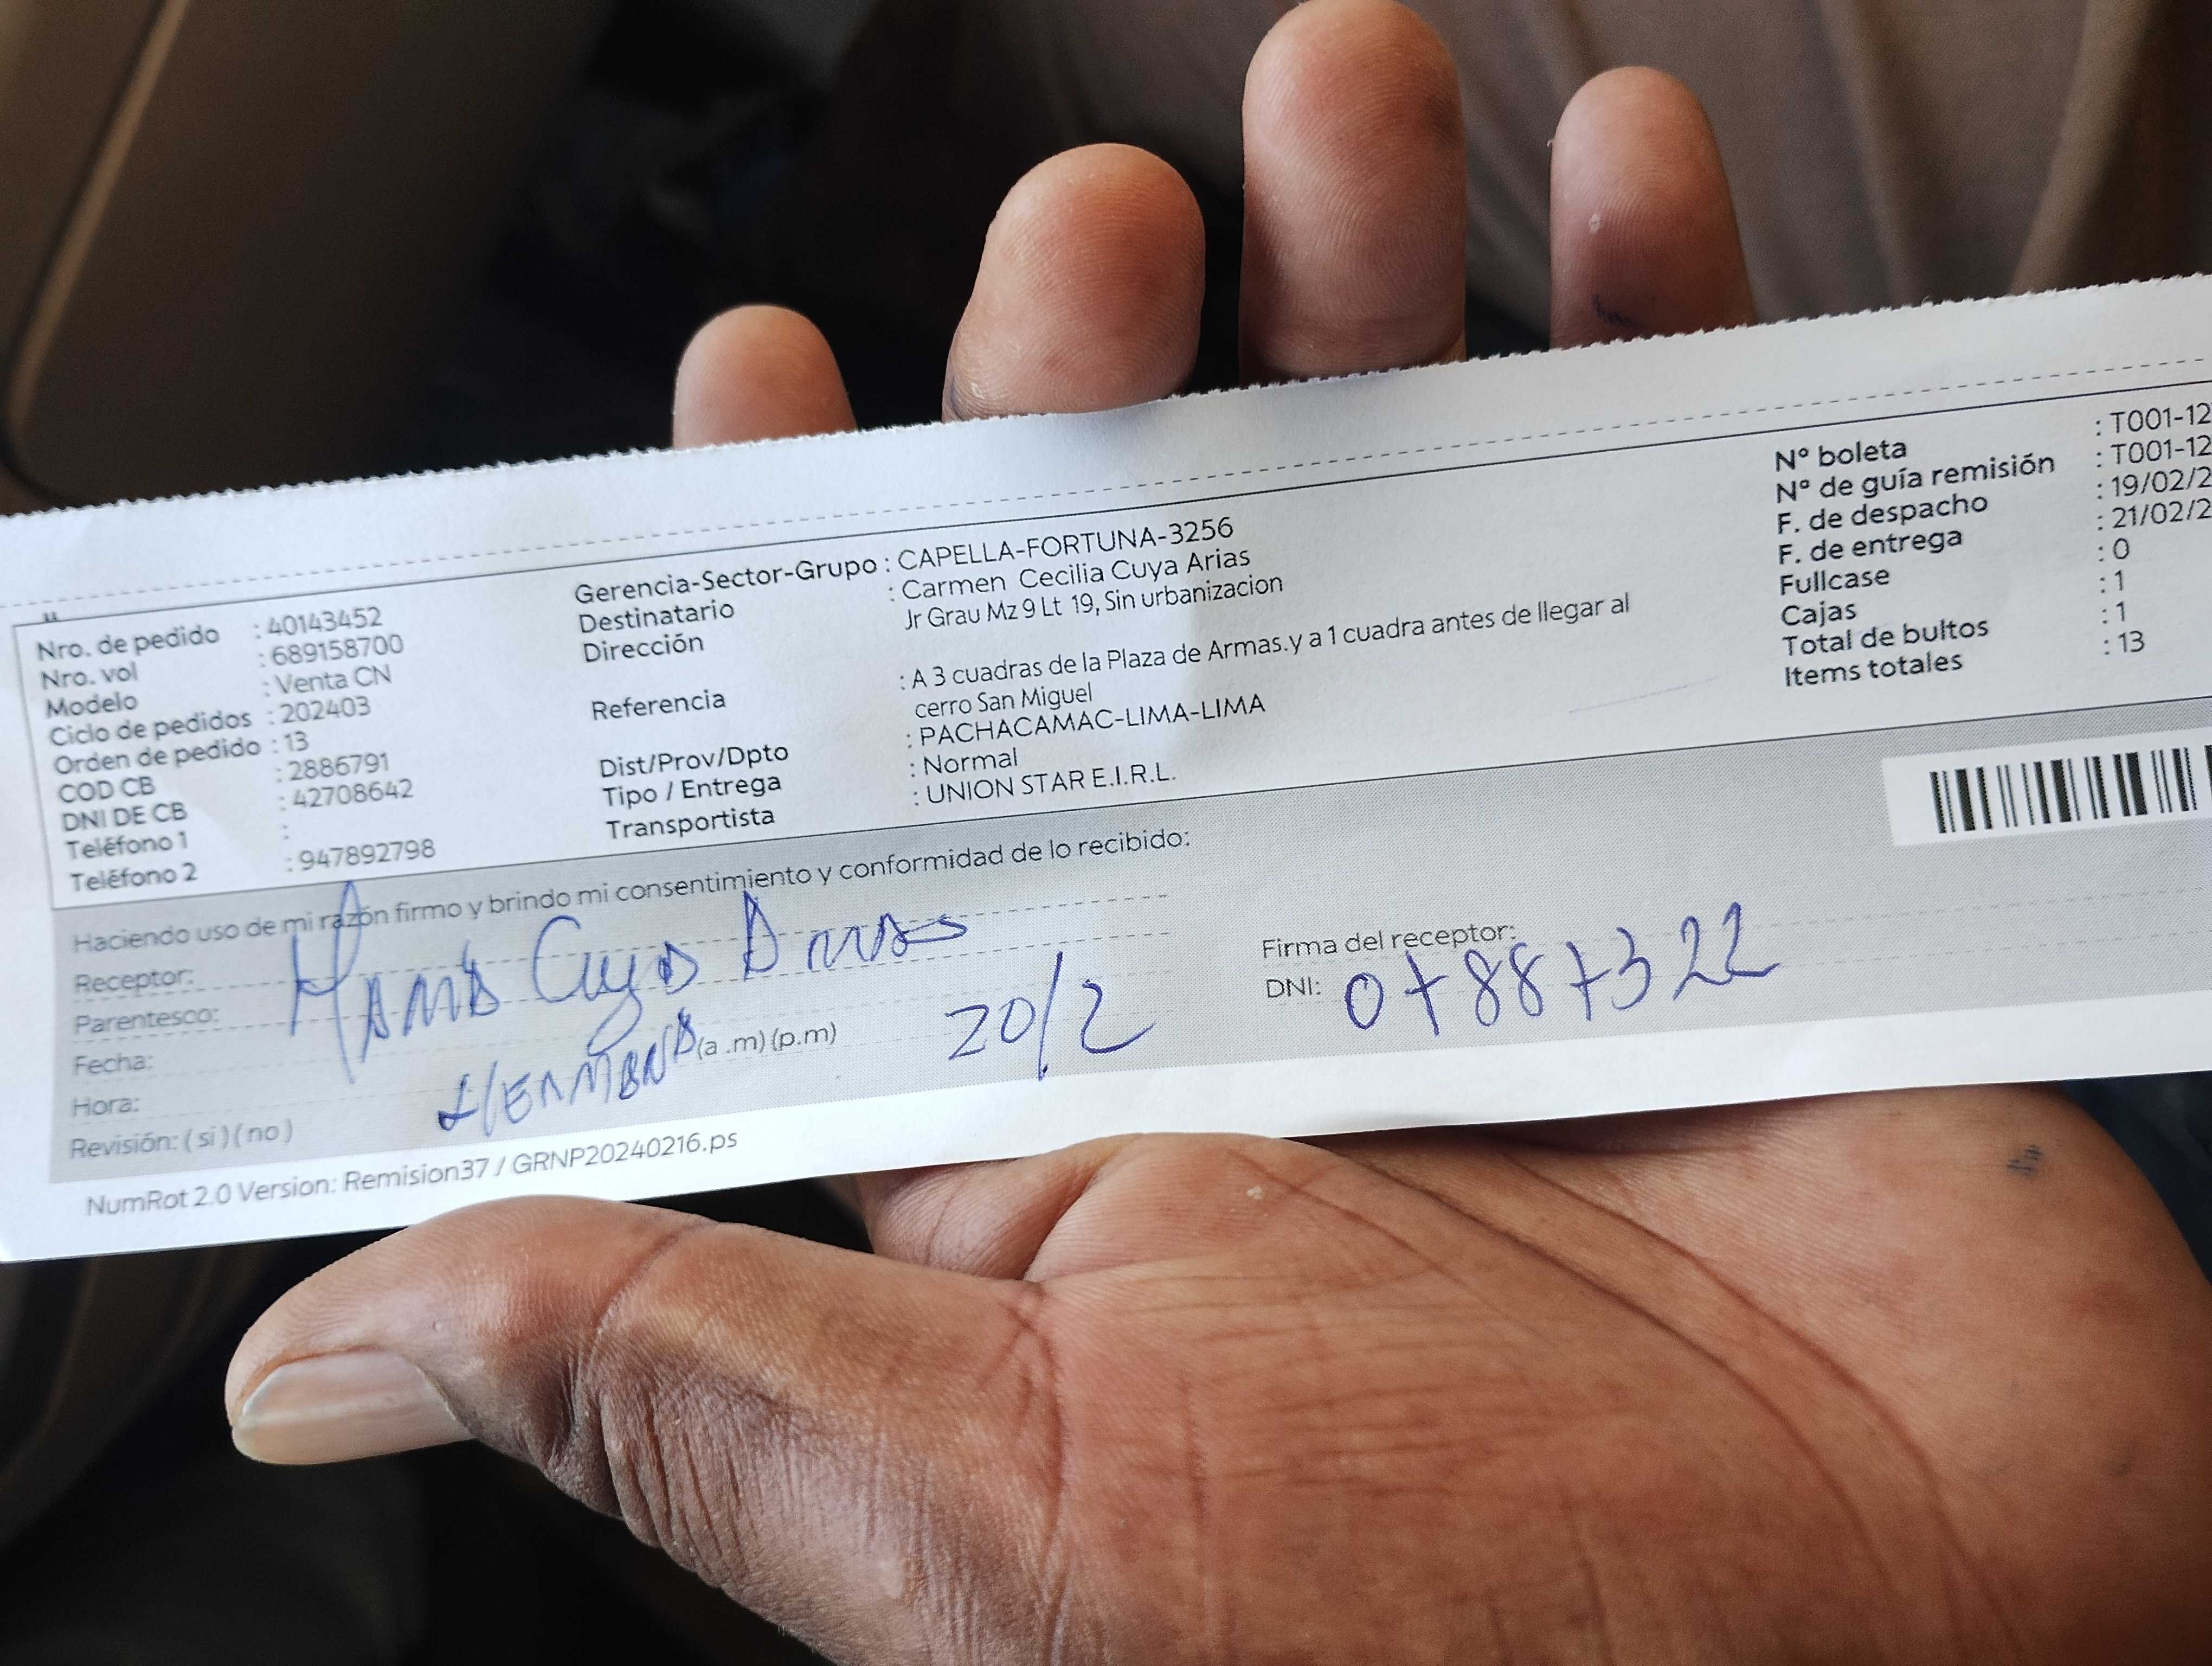 Nro. de pedido : 40143452
Nro. vol : 689158700
Modelo : Venta CN
Ciclo de pedidos : 202403
Orden de pedido : 13
COD CB : 2886791
DNI DE CB : 42708642
Teléfono 1 :
Teléfono 2 : 947892798
Gerencia-Sector-Grupo : CAPELLA-FORTUNA-3256
Destinatario : Carmen Cecilia Cuya Arias
Dirección Jr Grau Mz 9 Lt 19, Sin urbanizacion
Referencia : A 3 cuadras de la Plaza de Armas.y a 1 cuadra antes de llegar al
cerro San Miguel
Dist/Prov/Dpto : PACHACAMAC-LIMA-LIMA
Tipo / Entrega : Normal
Transportista : UNION STAR E.I.R.L.
Nº boleta : T001-12
Nº de guía remisión : T001-12
F. de despacho : 19/02/2
F. de entrega : 21/02/2
Fullcase : 0
Cajas : 1
Total de bultos : 1
Items totales : 13
Haciendo uso de mi razón firmo y brindo mi consentimiento y conformidad de lo recibido:
Receptor: Cuya
Parentesco: HERMANA
Fecha: 20/2
Hora: (a .m) (p.m)
Revisión: ( si ) ( no )
Firma del receptor:
DNI: 07887322
NumRot 2.0 Version: Remision37 / GRNP20240216.ps